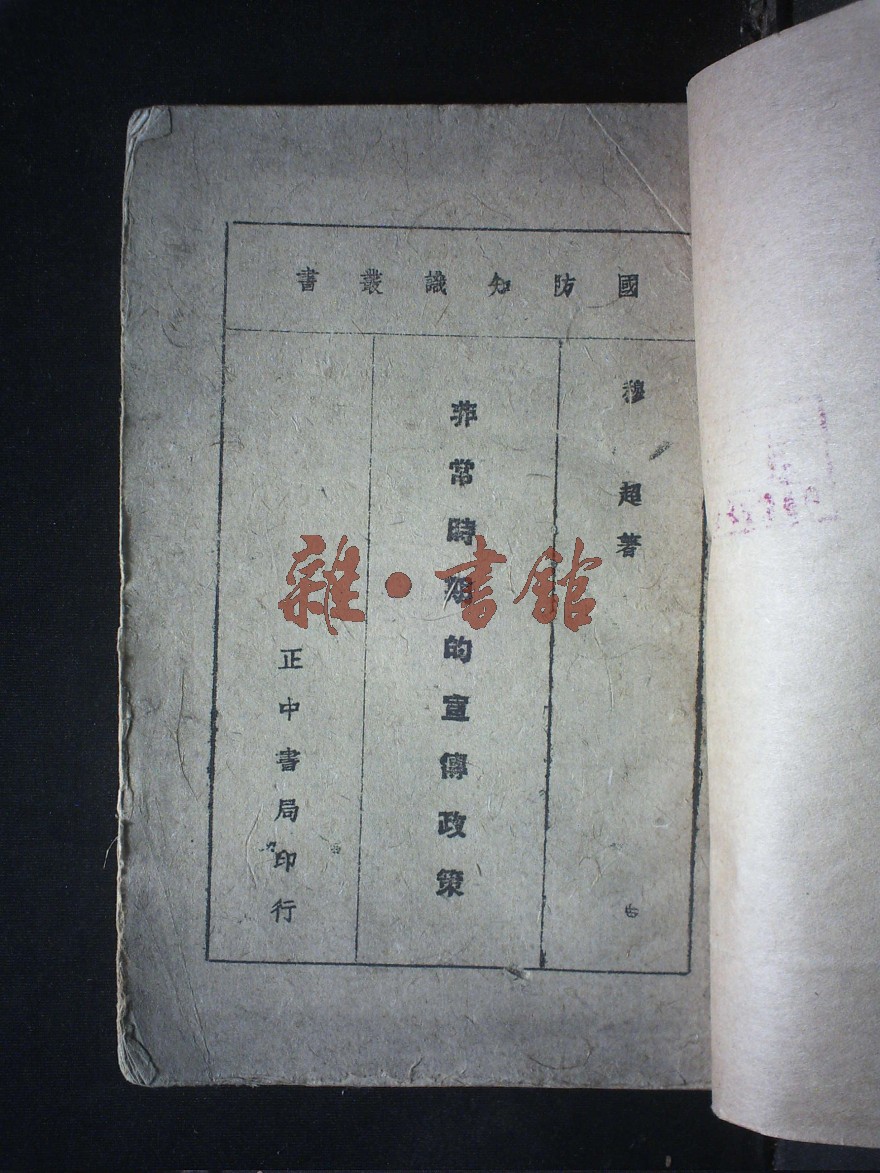 國防知識叢書
穆超著
非常時期的宣傳政策
正中書局印行
雜·書館